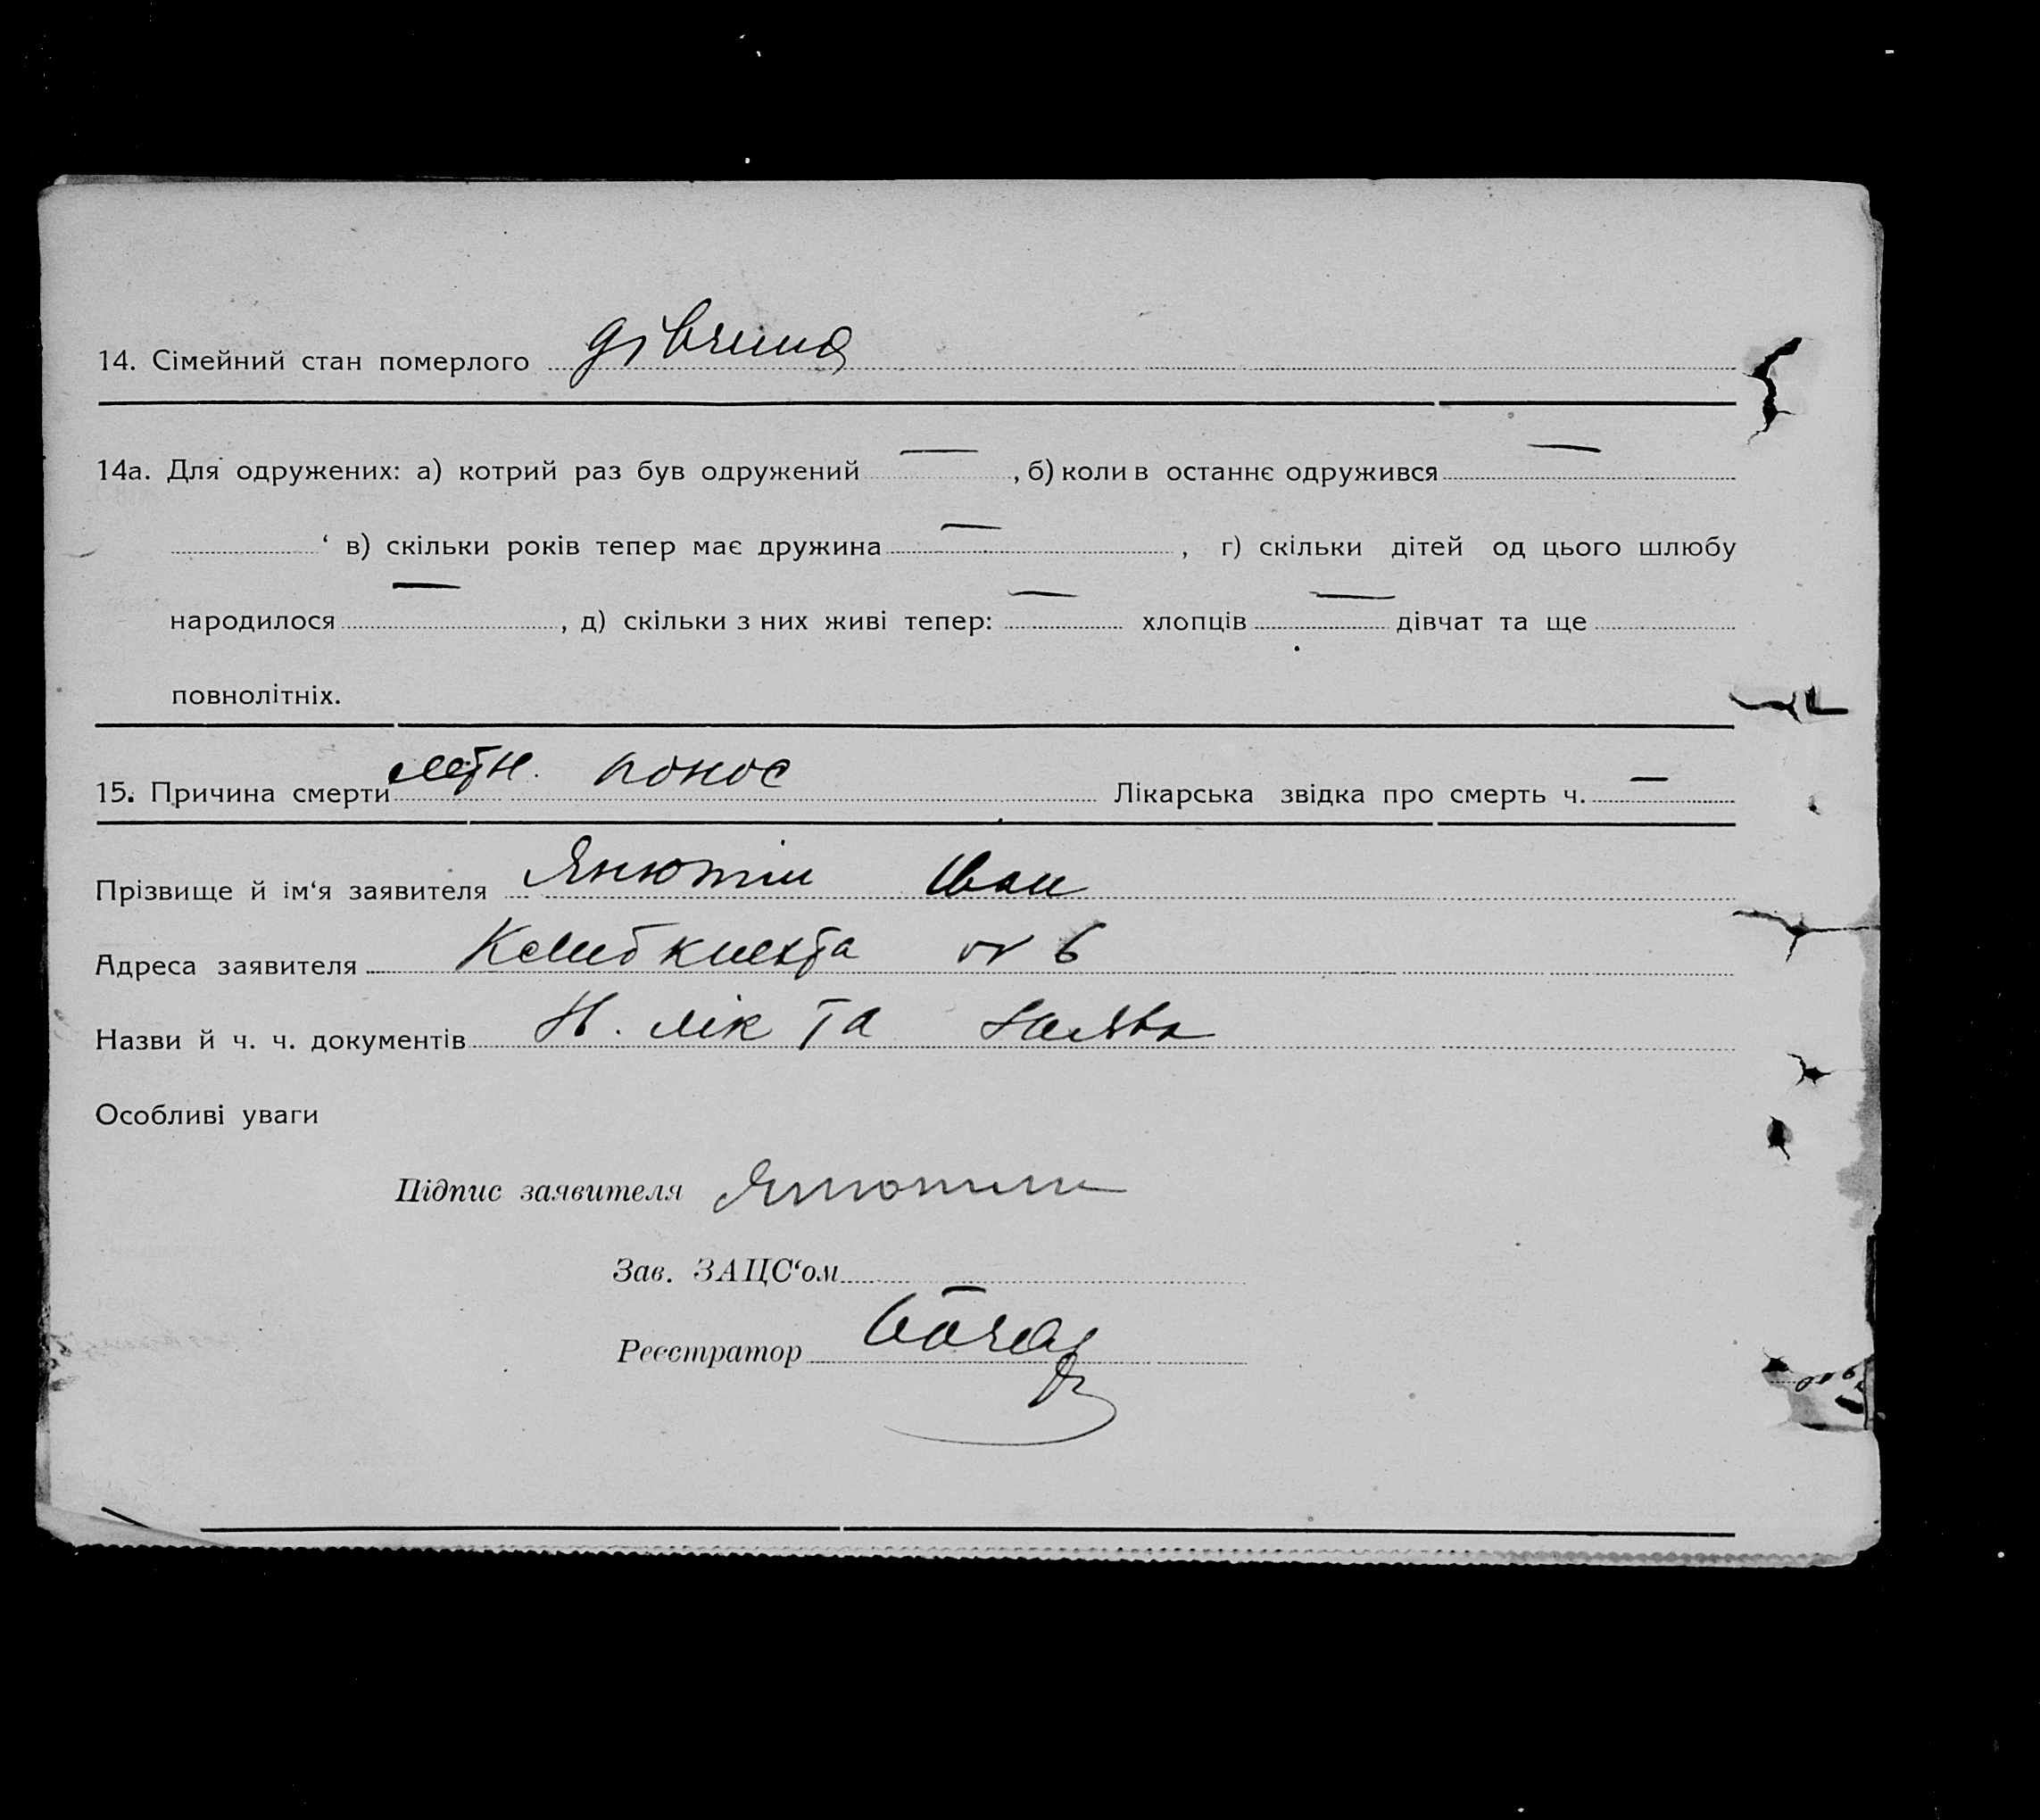 14. Сімейний стан померлого дівчина
14а. Для одружених: а) котрий раз був одружений — , б) коли в останнє одружився —
‘ в) скільки років тепер має дружина — , г) скільки дітей од цього шлюбу
народилося — , д) скільки з них живі тепер: — хлопців — дівчат та ще
повнолітніх.
15. Причина смерти літн. понос Лікарська звідка про смерть ч. —
Прізвище й ім‘я заявителя Янютін Іван
Адреса заявителя № 6
Назви й ч. ч. документів Н. лік та заява
Особливі уваги
Підпис заявителя Янютин
Зав. ЗАЦС‘ом
Реєстратор